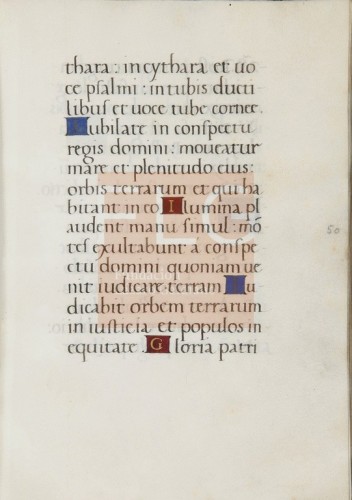 thara: in cythara et uo
ce psalmi: in tubis ducti
libus et uoce tube cornee.
Iubilate in conspectu
regis domini: moueatur
mare et plenitudo eius:
orbis terrarum et qui ha
bitant in eo Ilumina pl
audent manu simul: mõ
tes exultabunt a conspe
ctu domini quoniam ue
nit iudicare terram Iu
dicabit orbem terrarum
in iusticia et populos in
equitate. Gloria patri
50